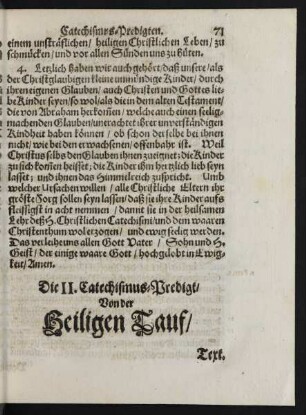 Catechismus-Predigten. 73
einem unsträflichen/ heiligen Christlichen Leben/ zu
schmücken/ und vor allen Sünden uns zu hüten.
4. Letzlich haben wir auch gehört/ daß unsere/ als
der Christglaubigen kleine unmündige Kinder/ durch
ihren eigenen Glauben/ auch Christen und Gottes lie-
be Kinder seyen/ so wol/ als die in dem alten Testament/
die von Abraham herkommen/ welche auch einen seelig-
machenden Glauben/ unerachtet ihrer unverständigen
Kindheit haben können/ ob schon derselbe bei ihnen
nicht/ wie bei den erwachsenen/ offenbahr ist. Weil
Christus selbs den Glauben ihnen zueignet: die Kinder
zu sich kommen heisset; die Kinder ihm herzlich lieb seyn
lasset; und ihnen das Himmelreich zuspricht. Umb
welcher Ursachen willen/ alle Christliche Eltern ihr
gröste Sorg sollen seyn lassen/ daß sie ihre Kinder aufs
fleissigst in acht nemmen/ damit sie in der heilsamen
Lehr deß H. Christlichen Catechismi/ und dem waaren
Christenthum wol erzogen/ und ewig seelig werden.
Das verleihe uns allen Gott Vater/ Sohn und H.
Geist/ der einige waare Gott/ hochgelobt in Ewig-
keit/ Amen.
Die II. Catechismus-Predigt/
Von der
Heiligen Tauf/
Text.